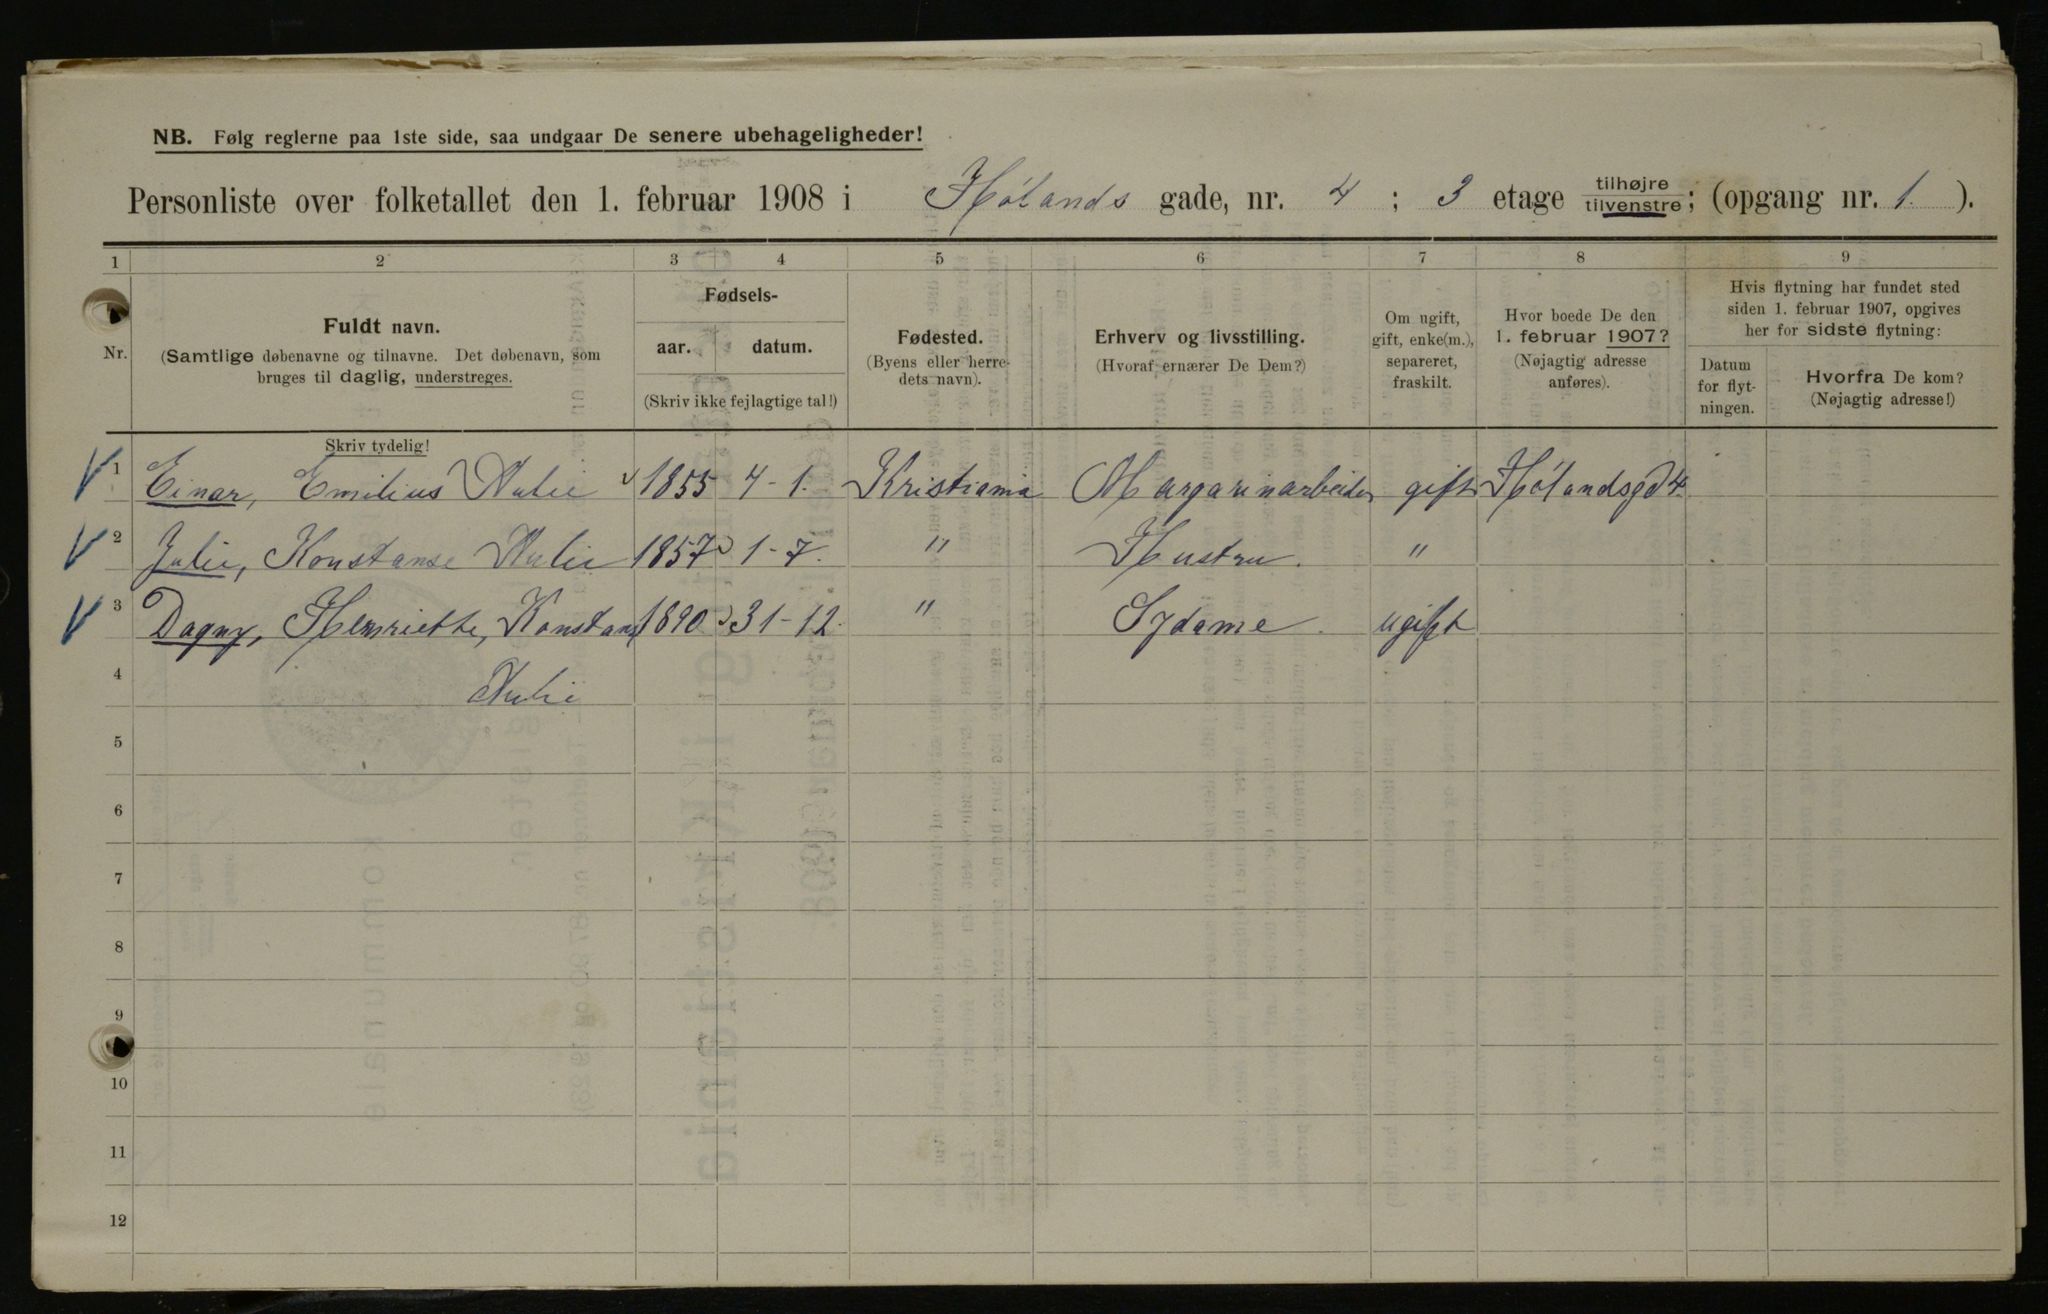 NB. Følg reglerne paa 1ste side, saa undgaar De senere ubehageligheder!
Personliste over folketallet den 1. februar 1908 i Hølands gade, nr. 4 ; 3 etage tilhøjre tilvenstre ; (opgang nr. 1. ).
1 2 3 4 5 6 7 8 9
Nr.
Fuldt navn.
(Samtlige døbenavne og tilnavne. Det døbenavn, som
bruges til daglig, understreges.
Skriv tydelig!
Fødsels-
aar. datum.
(Skriv ikke fejlagtige tal!)
Fødested.
(Byens eller herre-
dets navn).
Erhverv og livsstilling.
(Hvoraf ernærer De Dem?)
Om ugift,
gift, enke(m.),
separeret,
fraskilt.
Hvor boede De den
1. februar 1907?
(Nøjagtig adresse
anføres).
Hvis flytning har fundet sted
siden 1. februar 1907, opgives
her for sidste flytning:
Datum
for flyt-
ningen.
Hvorfra De kom?
(Nøjagtig adresse!)
1 Einar, Emilius Aulie 1855 4-1. Kristiania Margarinarbeider gift Hølandsgd 4.
2 Julie, Konstanse Aulie 1857 1-7. " Hustru. "
3 Dagny, Henriette, Konstans 1890 31-12. " Sydame. ugift
4 Aulie
5
6
7
8
9
10
11
12